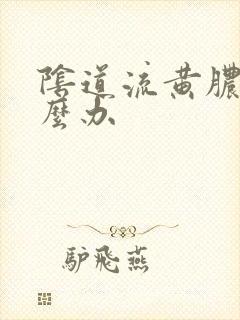 陰道流黄膿
麼办
驴飛燕